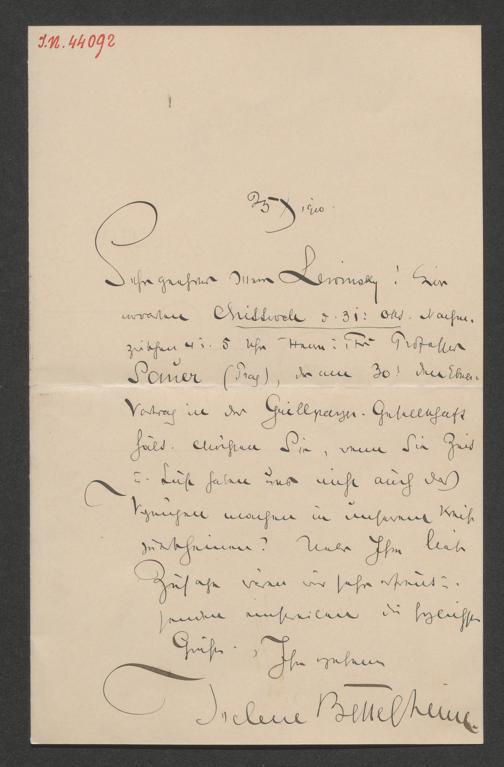 J.N. 44092
25/X 1900.
Sehr geehrter Herr Lewinsky! Wir
erwarten Mittwoch d. 31: Okt. Nachm.
zwischen 4 u. 5 Uhr Herrn u. Frau Professor
Sauer (Prag), der am 30: den Ebner-
Vortrag in der Grillparzer-Gesellschaft
hält. Möchten Sie, wenn Sie Zeit
u. Lust haben uns nicht auch das
Vergnügen machen in unserem Kreise
zu erscheinen? Über Ihre liebe
Zusage wären wir sehr erfreut u.
senden die herzlichsten
Grüße. Ihre ergebene
Helene Bettelheim.